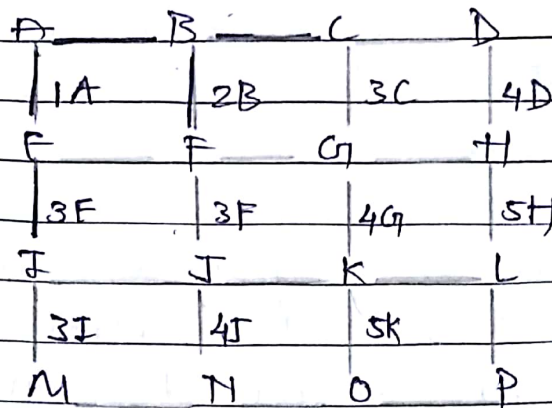 A B C D
1A 2B 3C 4D
E F G H
3E 3F 4G 5H
I J K L
3I 4J 5K
M N O P